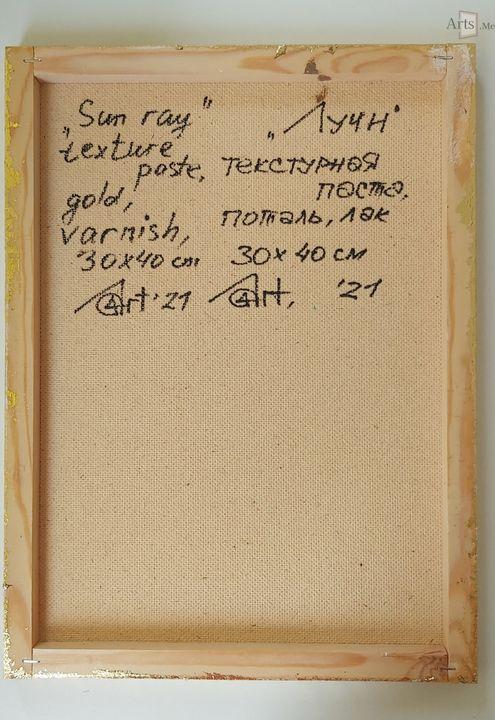 Arts.Me
„Sun ray"
texture
paste,
gold,
varnish,
30x40 cm
Art '21
„Лучи"
текстурная
паста,
поталь, лак
30x40 см
Art, '21